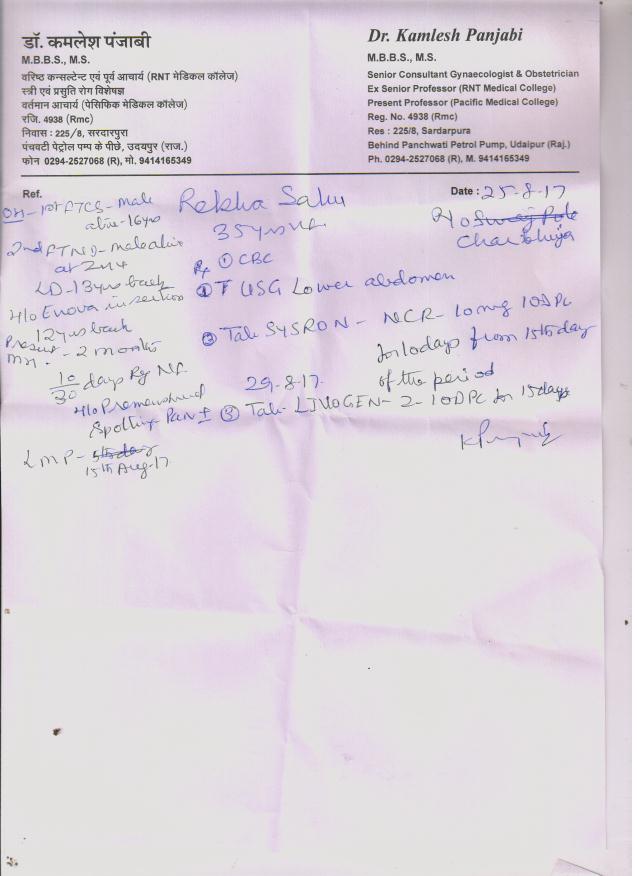 डॉ. कमलेश पंजाबी
M.B.B.S., M.S.
वरिष्ठ कन्सल्टेन्ट एवं पूर्व आचार्य (RNT मेडिकल कॉलेज)
स्त्री एवं प्रसुति रोग विशेषज्ञ
वर्तमान आचार्य (पेसिफिक मेडिकल कॉलेज)
रजि. 4938 (Rmc)
निवास : 225/8, सरदारपुरा
पंचवटी पेट्रोल पम्प के पीछे, उदयपुर (राज.)
फोन 0294-2527068 (R), मो. 9414165349
Dr. Kamlesh Panjabi
M.B.B.S., M.S.
Senior Consultant Gynaecologist & Obstetrician
Ex Senior Professor (RNT Medical College)
Present Professor (Pacific Medical College)
Reg. No. 4938 (Rmc)
Res : 225/8, Sardarpura
Behind Panchwati Petrol Pump, Udaipur (Raj.)
Ph. 0294-2527068 (R), M. 9414165349
Ref.
Date : 25-8-17
Rekha Sahu
35yrs
OH - 1st FTCS - Male
alive - 16yrs
2nd FTND - male alive
at
LD - 13yrs back
H/o insertion
12yrs back
Present - 2 months
MH.
10/30 days Rg
H/o Premenstrual
Spotting Pain ±
LMP -
15th Aug-17
Rx ① CBC
USG Lower abdomen
② Tab SYSRON - NCR - 10mg 1OD PC
for 10 days from 15th day
of the period
29-8-17.
③ Tab- LIVOGEN - Z - 1OD PC for 15days